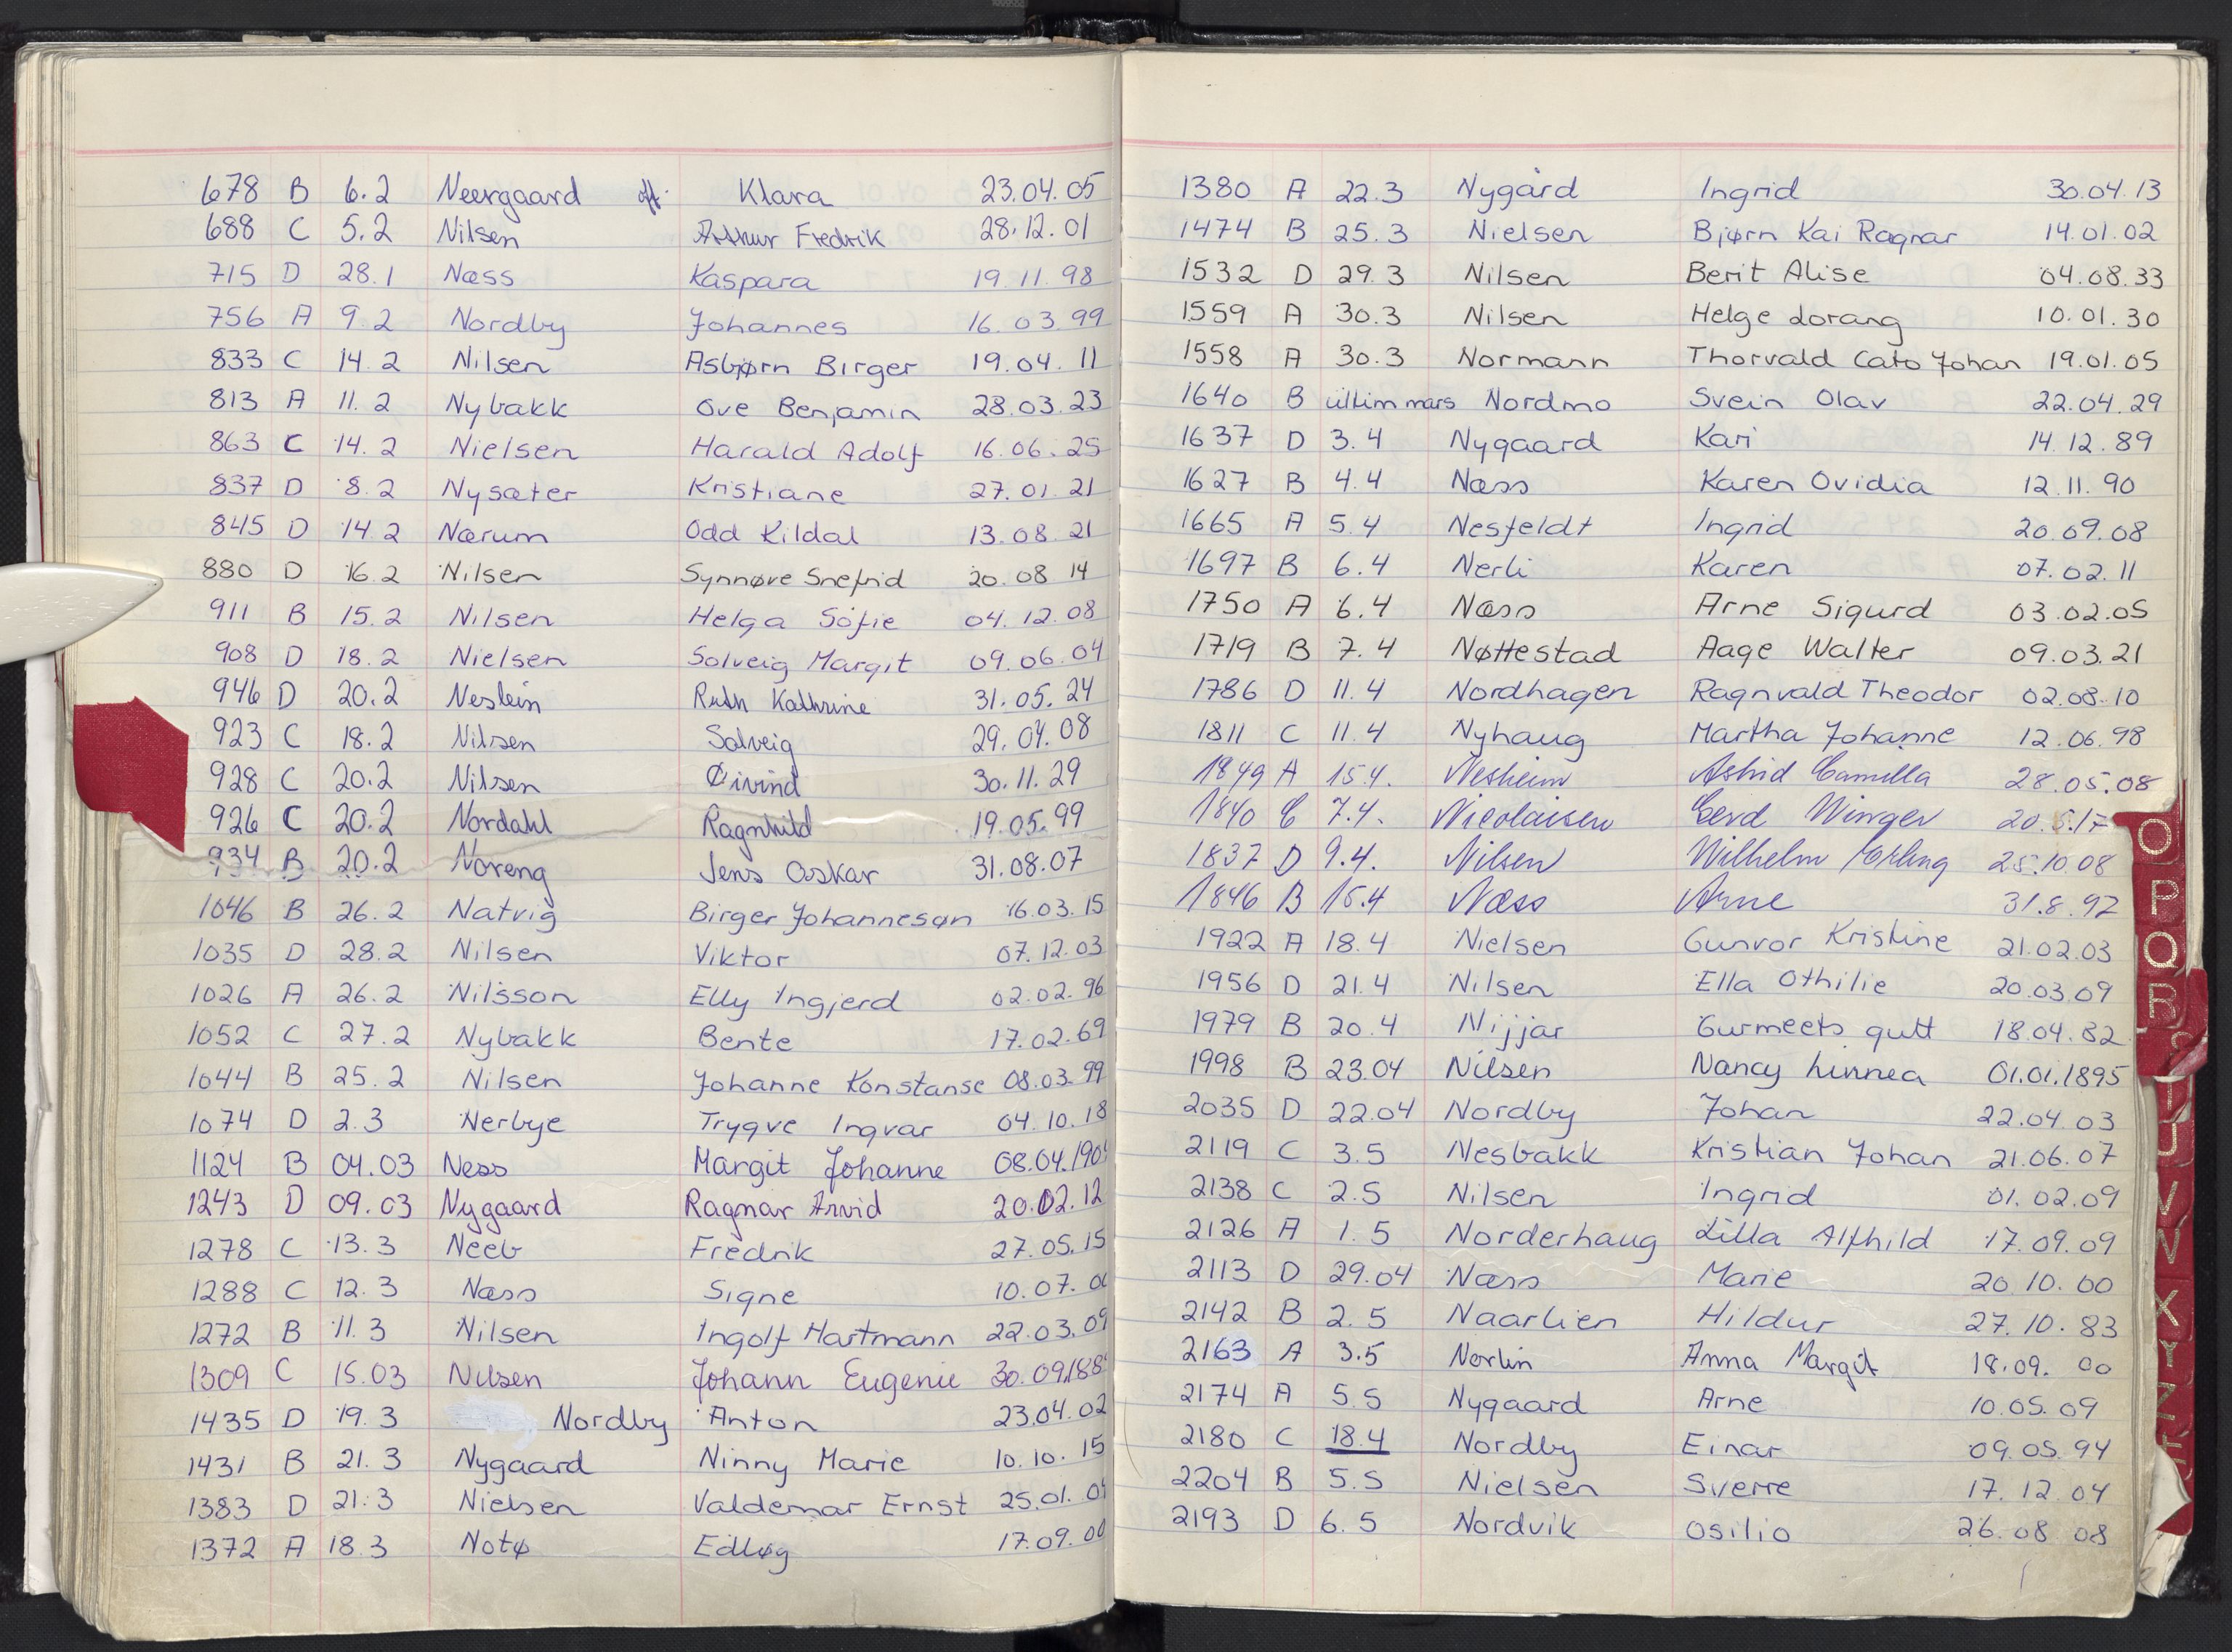 678 B 6.2 Neergaard Klara 23.04.05
688 C 5.2 Nilsen Arthur Fredrik 28.12.01
715 D 28.1 Næss Kaspara 19.11.98
756 A 9.2 Nordby Johannes 16.03.99
833 C 14.2 Nilsen Asbjørn Birger 19.04.11
813 A 11.2 Nybakk Ove Benjamin 28.03.23
863 C 14.2 Nielsen Harald Adolf 16.06.25
837 D 8.2 Nysæter Kristiane 27.01.21
845 D 14.2 Nærum Odd Kildal 13.08.21
880 D 16.2 Nilsen Synnøve Snefrid 20.08 14
911 B 15.2 Nilsen Helga Sofie 04.12.08
908 D 18.2 Nielsen Solveig Margit 09.06.04
946 D 20.2 Neslein Ruth Kathrine 31.05.24
923 C 18.2 Nilsen Solveig 29.04.08
928 C 20.2 Nilsen Øivind 30.11.29
926 C 20.2 Nordahl Ragnhild 19.05.99
934 B 20.2 Noreng Jens Oskar 31.08.07
1046 B 26.2 Natvig Birger Johannesøn 16.03.15
1035 D 28.2 Nilsen Viktor 07.12.03
1026 A 26.2 Nilsson Elly Ingjerd 02.02.96
1052 C 27.2 Nybakk Bente 17.02.69
1044 B 25.2 Nilsen Johanne Konstanse 08.03.99
1074 D 2.3 Nerbye Trygve Ingvar 04.10.18
1124 B 04.03 Ness Margit Johanne
1243 D 09.03 Nygaard Ragnar Arvid 20.02.12
1278 C 13.3 Neeb Fredrik 27.05.15
1288 C 12.3 Næss Signe 10.07.00
1272 B 11.3 Nilsen Ingolf Hartmann 22.03.09
1309 C 15.03 Nilsen Johann Eugenie
1435 D 19.3 Nordby Anton 23.04.02
1431 B 21.3 Nygaard Ninny Marie 10.10.15
1383 D 21.3 Nielsen Valdemar Ernst
1372 A 18.3 Notø Edløg 17.09.00
1380 A 22.3 Nygård Ingrid 30.04.13
1474 B 25.3 Nielsen Bjørn Kai Ragnar 14.01.02
1532 D 29.3 Nilsen Berit Alise 04.08.33
1559 A 30.3 Nilsen Helge Lorang 10.01.30
1558 A 30.3 Normann Thorvald Cato Johan 19.01.05
1640 B ultim mars Nordmo Svein Olav 22.04.29
1637 D 3.4 Nygaard Kari 14.12.89
1627 B 4.4 Næss Karen Ovidia 12.11.90
1665 A 5.4 Nesfeldt Ingrid 20.09.08
1697 B 6.4 Nerli Karen 07.02.11
1750 A 6.4 Næss Arne Sigurd 03.02.05
1719 B 7.4 Nøttestad Aage Walter 09.03.21
1786 D 11.4 Nordhagen Ragnvald Theodor 02.08.10
1811 C 11.4 Nyhaug Martha Johanne 12.06.98
1849 A 15.4. Nesheim Astrid Camilla 28.05.08
1840 C 7.4. Nicolaisen Gerd Winger
1837 D 9.4. Nilsen Wilhelm Erling 25.10.08
1846 B 15.4 Næss Arne 31.8.92
1922 A 18.4 Nielsen Gunvor Kristine 21.02.03
1956 D 21.4 Nilsen Ella Othilie 20.03.09
1979 B 20.4 Nijjar Gurmeets gutt 18.04.82
1998 B 23.04 Nilsen Nancy Linnea 01.01.1895
2035 D 22.04 Nordby Johan 22.04.03
2119 C 3.5 Nesbakk Kristian Johan 21.06.07
2138 C 2.5 Nilsen Ingrid 01.02.09
2126 A 1.5 Norderhaug Lilla Alfhild 17.09.09
2113 D 29.04 Næss Marie 20 10.00
2142 B 2.5 Naarlien Hildur 27.10.83
2163 A 3.5 Norlin Anna Margit 18.09.00
2174 A 5.5 Nygaard Arne 10.05.09
2180 C 18.4 Nordby Einar 09.05.94
2204 B 5.5 Nielsen Sverre 17.12.04
2193 D 6.5 Nordvik Osilio 26.08 08
O
P
Q
R
T
U
V
X
Y
Z